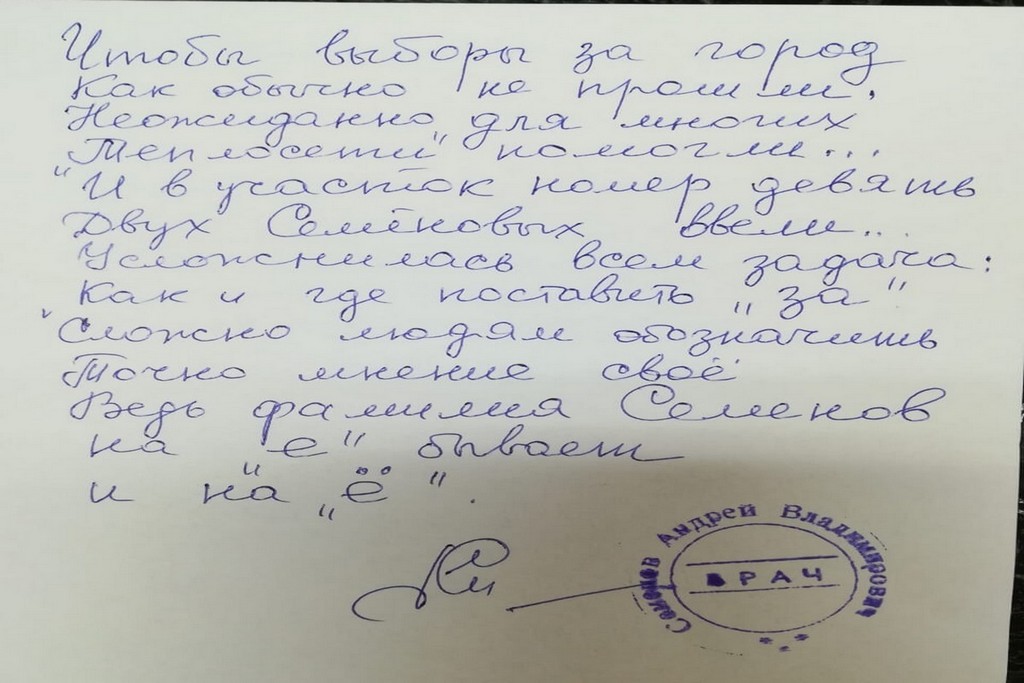 Чтобы выборы за город
Как обычно не прошли,
Неожиданно для многих
"Теплосети" помогли...
И в участок номер девять
Двух Семёновых ввели...
Усложнилась всем задача:
Как и где поставить "за"
Сложно людям обозначить
Точно мнение своё
Ведь фамилия Семенов
на "е" бывает
и на "ё".
Семенов Андрей Владимирович
ВРАЧ